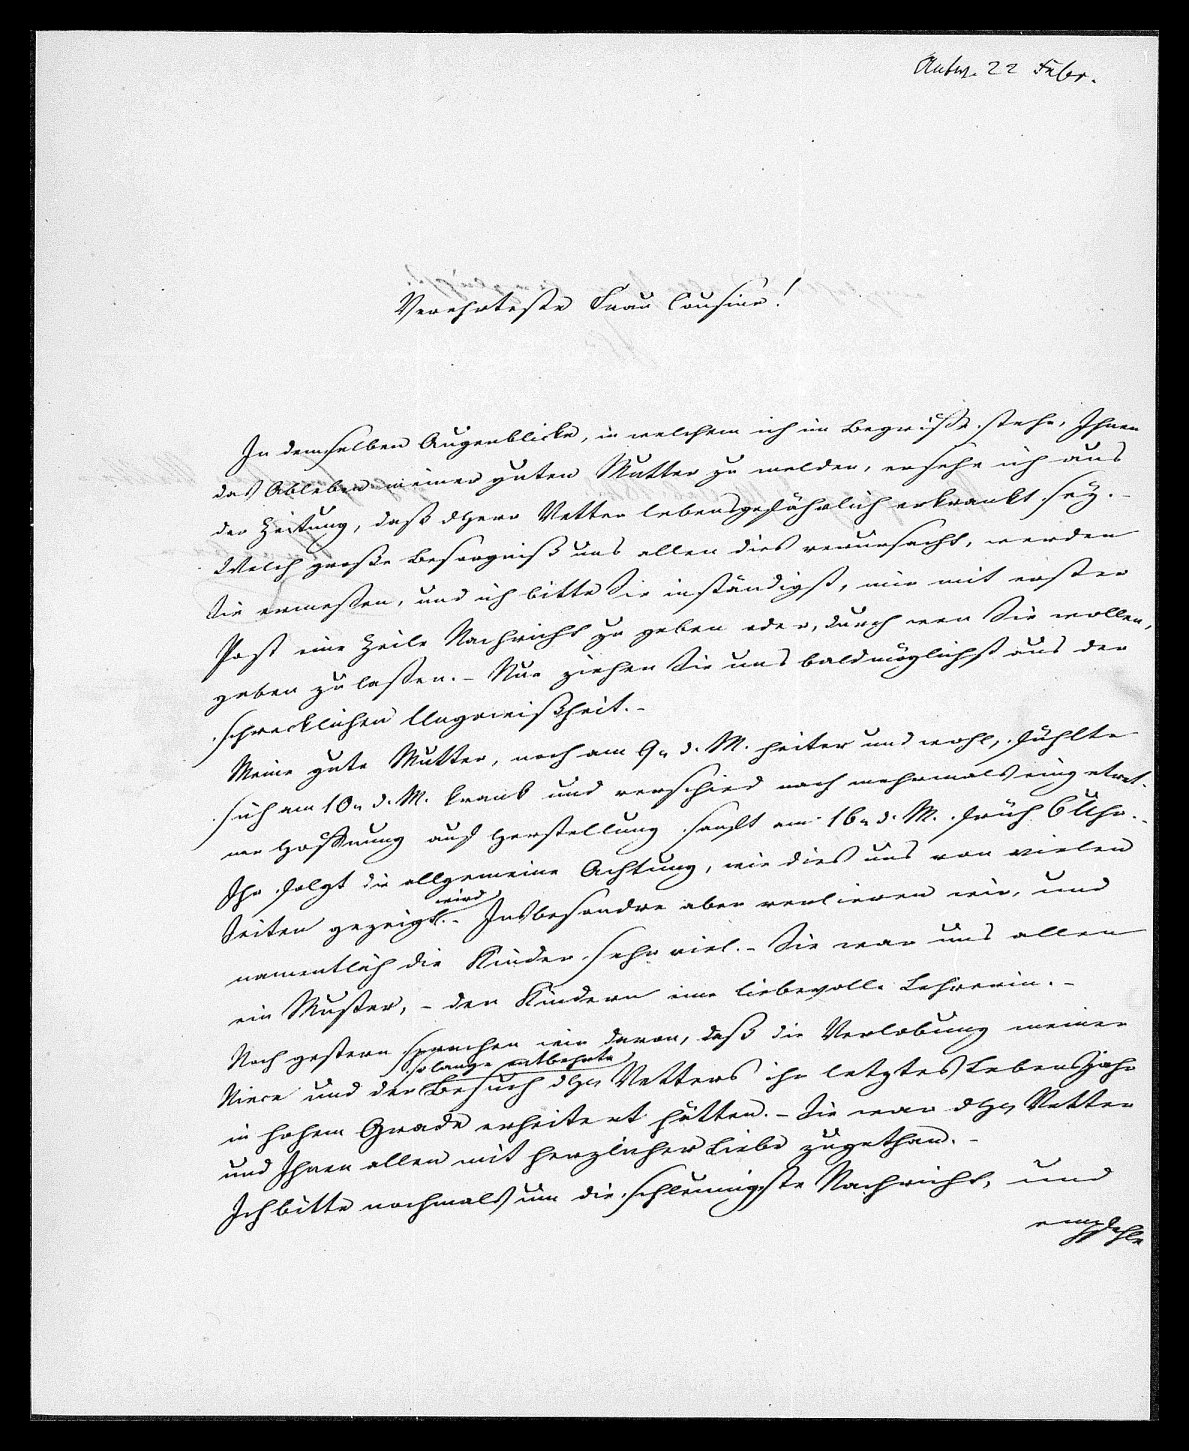 Antw. 22 Febr.
Verehrteste Frau Cousine!
In demselben Augenblicke, in welchem ich im Begriffe stehe, Ihnen
das Ableben meiner guten Mutter zu melden, ersehe ich aus
der Zeitung, daß dHerr Vetter lebensgefährlich erkrankt sey. -
Welch große Besorgniß uns allen dies verursacht, werden
Sie ermeßen, und ich bitte Sie inständigst, mir mit erster
Post eine Zeile Nachricht zu geben oder, durch wen Sie wollen,
geben zu laßen. - Nur ziehen Sie uns baldmöglichst aus der
schrecklichen Ungewißheit. -
Meine gute Mutter, noch am 9n d. M. heiter und wohl, fühlte
sich am 10n d. M. krank und verschied nach mehrmals eingetret-
ner Hoffnung auf Herstellung sanft am 16n d. M. früh 6 Uhr. -
Ihr folgt die allgemeine Achtung, wie dies uns von vielen
Seiten gezeigt wird. - Insbesondre aber verlieren wir, und
namentlich die Kinder sehr viel. - Sie war uns allen
ein Muster, - den Kindern eine liebevolle Lehrerin. -
Noch gestern sprachen wir davon, daß die Verlobung meiner
Niece und der so lange entbehrte Besuch dHn Vetters ihr letztes Lebensjahr
in hohem Grade erheitert hätten. - Sie war dHn Vetter
und Ihnen allen mit herzlicher Liebe zugethan. -
Ich bitte nochmals um die schleunigste Nachricht, und
empfehle